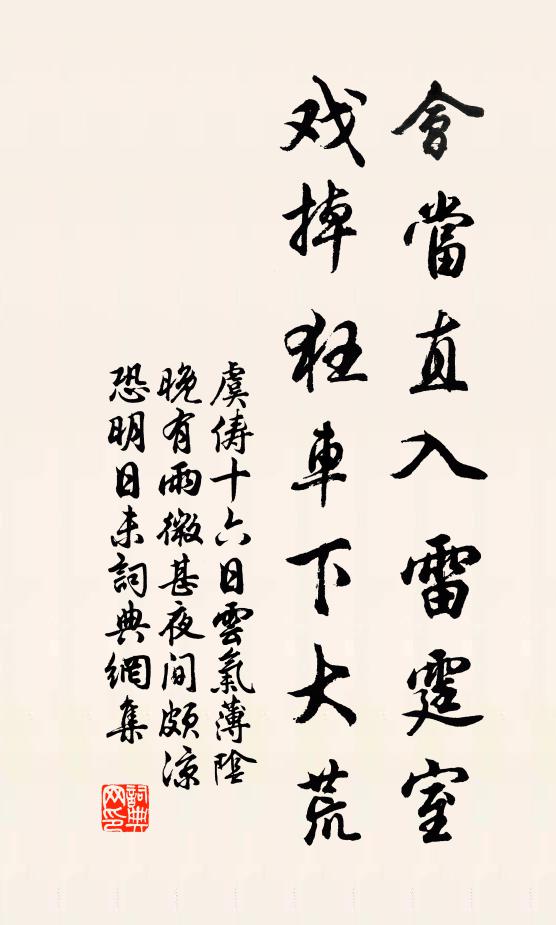 會當直入雷霆室
戏掉狂車下大荒
虞儔十六日雲氣薄陰
晚有雨微甚夜间頗凉
恐明日未詞典網集
詞典
网印